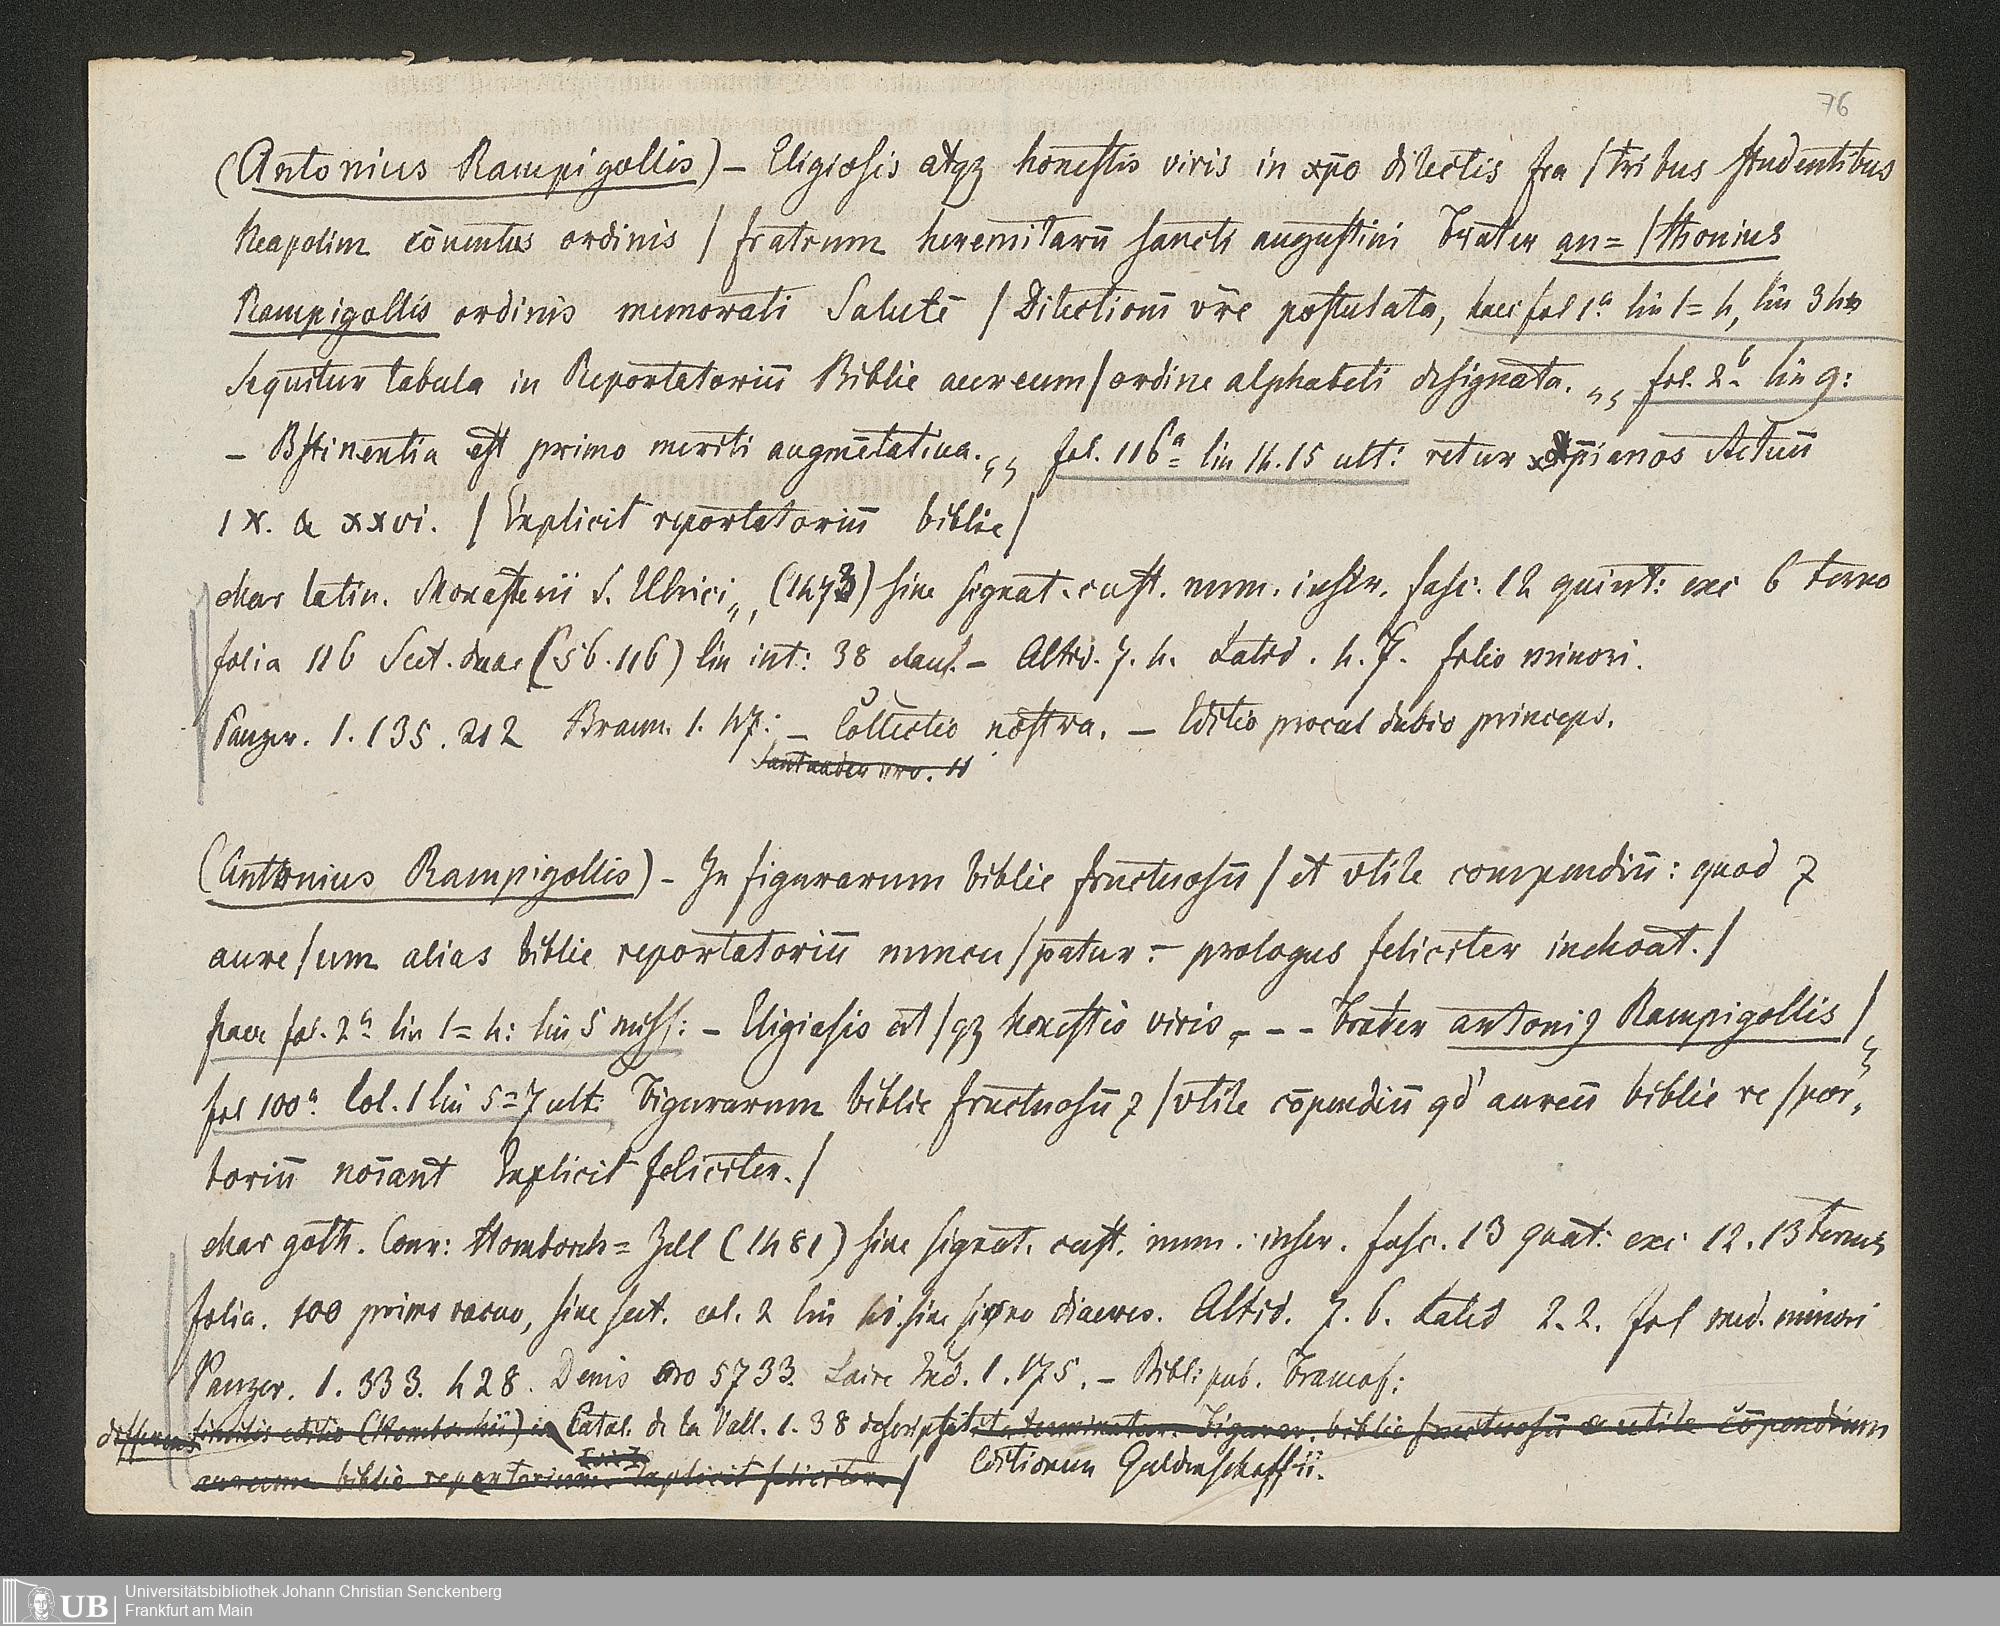 76
(Antonius Rampigollis) – Eligiosis atqz honestis viris in xp̄o dilectis fra / tribus studentibus
Neapolim cōuentus ordinis / fratrum heremitarū sancti augustini Frater an= / thonius
Rampigollis ordinis memorati Salutē / Dilectioni vr̄e postulata, haec fol 1a lin 1=4, lin
Sequitur tabula in Reportatoriū Biblie aureum / ordine alphabeti designata. „ fol. 2b lin 9:
– Bstinentia est primo meriti augmētatiua. „ fol. 116a lin 14.15 ult: retur xp̄ianos Actuū
IX. & xxvi. / Explicit reportatoriū biblie /
char latin. Monasterii S. Ulrici „ (1473) sine signat. cust. num. inscr. fasc. 12 quint: exc 6 terno
folia 116 Sect. duae (56.116) lin int: 38 claus. – Altid. 7. 4. Latid. 4. 7. folio minori.
Panzer. 1. 135. 212 Braun. 1. 47: – Collectio nostra. – Editio procul dubio princeps.
Santander nro. 11
(Anthonius Rampigollis) – In figurarum biblie fructuosū / et vtile compendiū: quod 7
aure / um alias biblie reportatoriū nuncu / patur – prologus feliciter inchoat. /
haec fol. 2a lin 1=4: lin 5 miss: – Eligiosis at / qz honestis viris, – – – Frater antoni9 Rampigollis / „
fol 100a. Col. 1 lin 5=7 ult: Figurarum biblie fructuosū 7 / vtile cōpendiū qd' aureū biblie re / por„
toriū noīant Explicit feliciter. /
char goth. Conr: Homborch= Zell (1481) sine signat. cust. num. inscr. fasc. 13 quat: exc 12. 13 ternis
folia. 100 primo vacuo, sine sect. col. 2 lin sine signo diaeres. Altid. 7. 6. Latid 2. 2. fol med. minori
Panzer. 1. 333. 428. Denis nro 5733. Laire Ind. 1. 175. – Bibl: pub. Francof:
differens similis editio (Homborchii) in Catal. de la Vall. 1. 38 descripta ita terminatur. Figurar. biblie fructuosū & utile cōpendium
aureum biblie reportorium. Explicit feliciter / Editionum Guldenschaffii.
UB Universitätsbibliothek Johann Christian Senckenberg
Frankfurt am Main